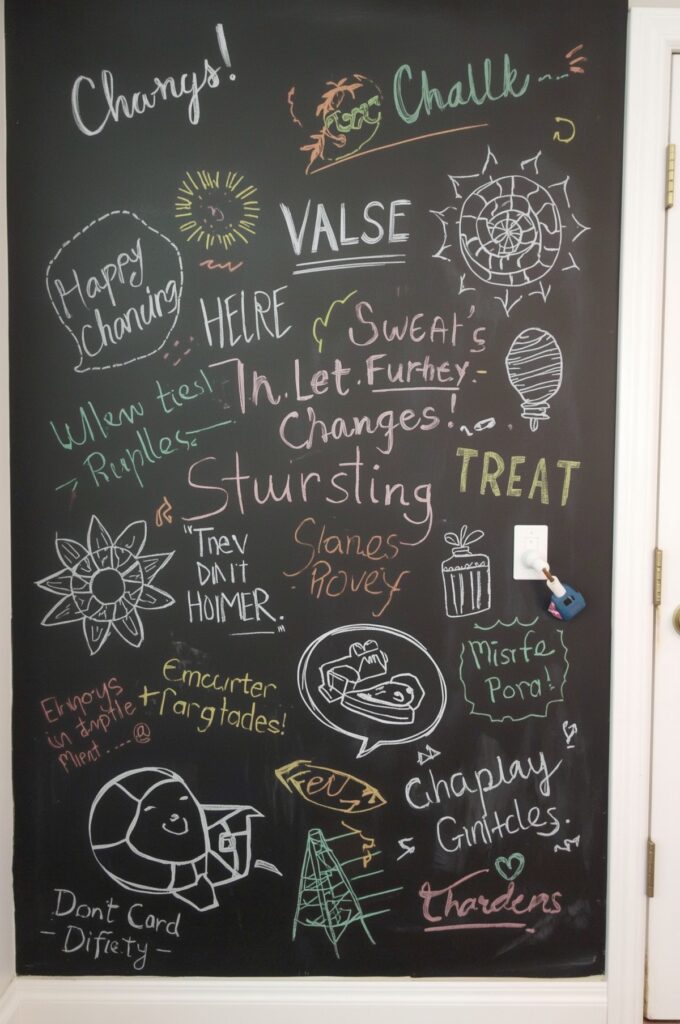 Changs!
Challk
VALSE
Happy
Chancing
HELRE
SWEAT'S
In. Let. Furhey.
Changes!
Wllew ties!
Ruplles
TREAT
Stuirsting
"Tnev
DIN IT
HOIMER."
Slanes
Rovey
Misife
Pora!
Emcurter
+ Targtades!
Ehnoys
in
Mient....@
Feu
Ghaplay
Ginitcles.
Thardens
Dont Card
- Difiety -